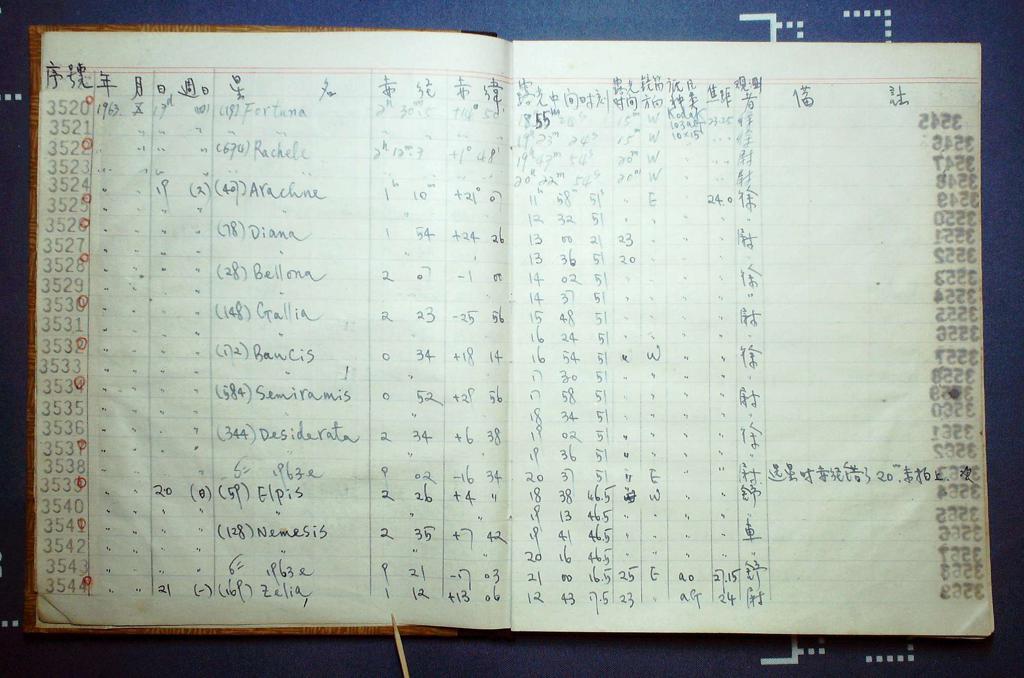 序號 年 月 日 週日 星 名 赤 經 赤 緯 露光中間时刻 露光时间 鏡筒方向 底片种类 焦距 观測者 備 註
3520 1963 X 17d (19) Fortuna 2h 30m.5 +14° 50' 18h 55m 15m W Kodak 103aO 10×15 23.25 徐
3521 〃 〃 〃 〃 19h 23m 24s 15m W 徐
3522 〃 〃 (674) Rachele 2h 12m.7 +1° 48' 19h 47m 54s 20m W 尉
3523 〃 〃 〃 〃 20h 22m 54s 20m W 尉
3524 〃 〃 19 (2) (407) Arachne 1h 10m +21° 07' 11h 58 51s 〃 E 24.0 徐
3525 〃 〃 〃 12 32 51 〃
3526 〃 〃 (78) Diana 1 54 +24 26 13 00 21 23 尉
3527 〃 〃 〃 13 36 51 20
3528 〃 〃 (28) Bellona 2 07 -1 00 14 02 51 徐
3529 〃 〃 〃 14 37 51 〃
3530 〃 〃 (148) Gallia 2 23 -25 56 15 48 51 尉
3531 〃 〃 〃 16 24 51 〃
3532 〃 〃 (172) Baucis 0 34 +18 14 16 54 51 〃 W 徐
3533 〃 〃 〃 17 30 51 〃
3534 〃 〃 (584) Semiramis 0 52 +28 56 17 58 51 尉
3535 〃 〃 〃 18 34 51 〃
3536 〃 〃 (344) Desiderata 2 34 +6 38 19 02 51 〃 徐
3537 〃 〃 〃 19 36 51 〃
3538 〃 〃 1963e 9 02 -16 34 20 37 51 〃 E 尉
3539 〃 〃 20 (0) (59) Elpis 2 26 +4 〃 18 38 46.5 W 舒
3540 〃 〃 〃 19 13 46.5 〃
3541 〃 〃 (128) Nemesis 2 35 +7 42 19 41 46.5 車
3542 〃 〃 〃 20 16 46.5 〃
3543 〃 〃 1963e 9 21 -17 03 21 00 16.5 25 E ao 27.15 舒
3544 〃 〃 21 (-) (169) Zelia 1 12 +13 06 12 43 7.5 23 24 尉